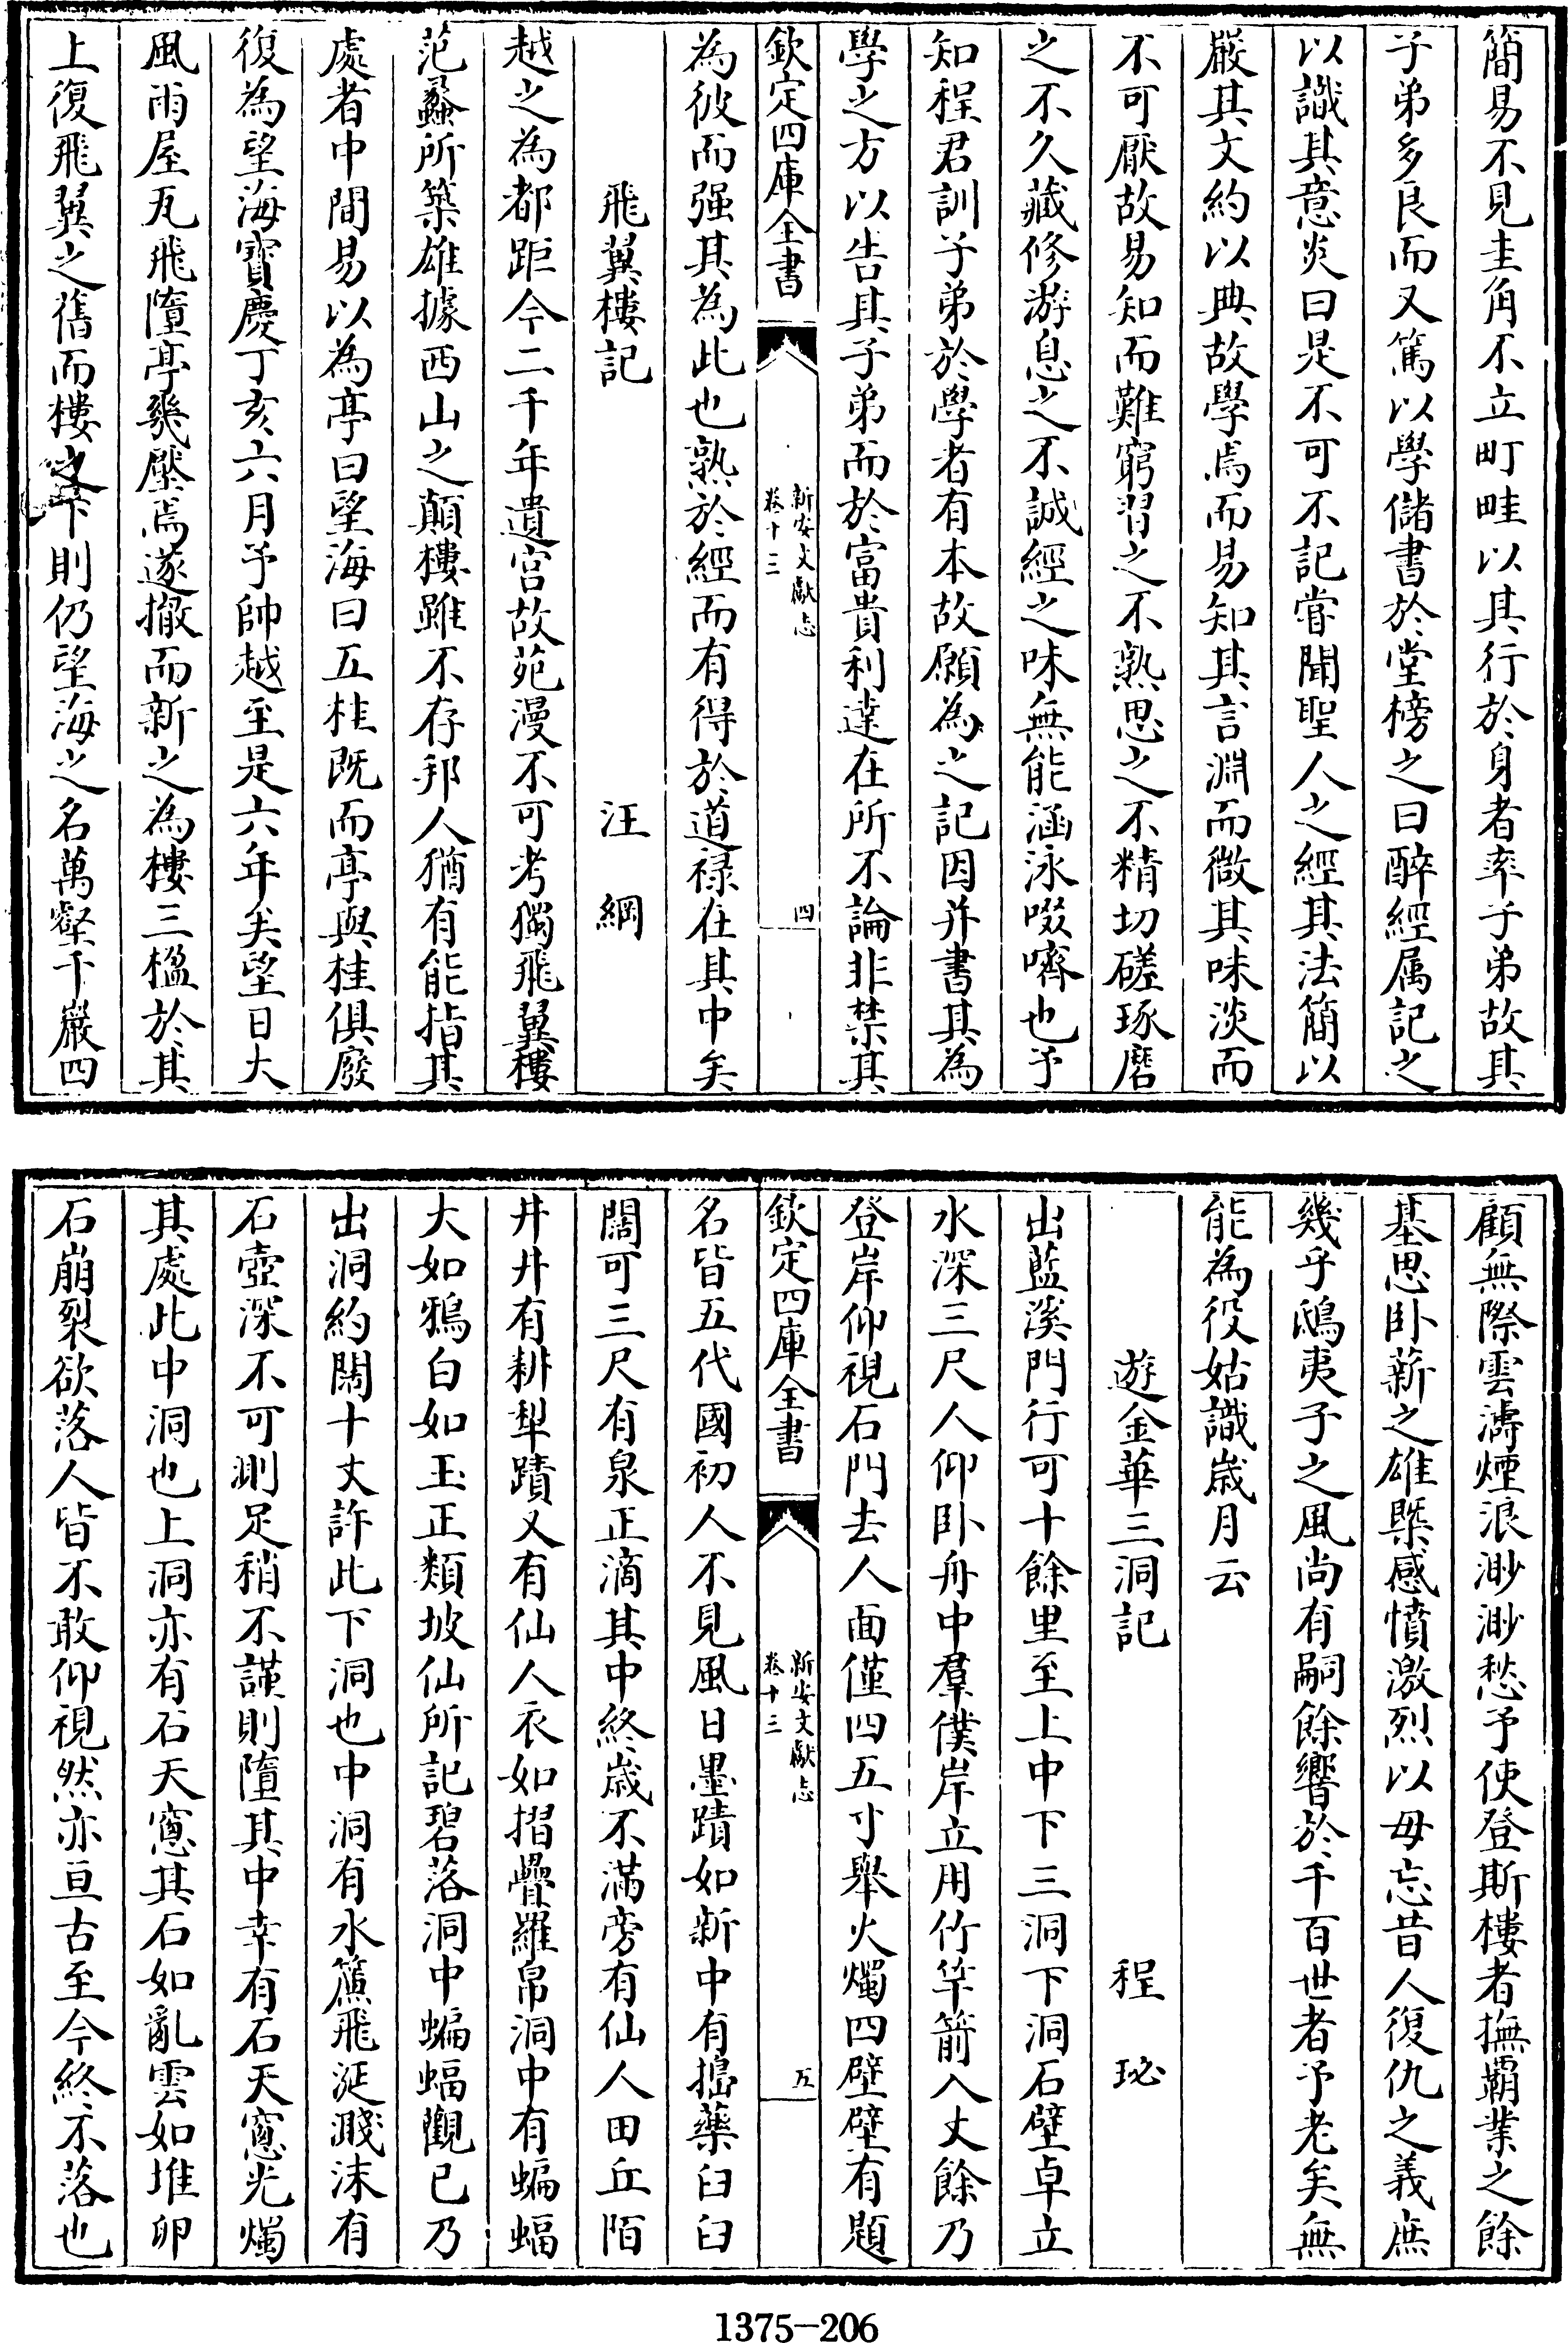 簡易不見圭角不立町畦以其行於身者率子弟故其
子弟多良而又篤以學儲書於堂榜之曰醉經属記之
以識其意炎曰是不可不記嘗聞聖人之經其法簡以
嚴其文約以典故學焉而易知其言淵而微其味淡而
不可厭故易知而難窮習之不熟思之不精切磋琢磨
之不久藏修游息之不誠經之味無能涵泳啜嚌也予
知程君訓子弟於學者有本故願為之記因并書其為
學之方以告其子弟而於富貴利達在所不論非禁其
欽定四庫全書
新安文獻志
卷十三
四
為彼而强其為此也熟於經而有得於道祿在其中矣
飛翼樓記
汪綱
越之為都距今二千年遺宫故苑漫不可考獨飛翼樓
范蠡所築雄據西山之顛樓雖不存邦人猶有能指其
處者中間易以為亭曰望海曰五桂既而亭與桂俱廢
復為望海寳慶丁亥六月予帥越至是六年矣望日大
風雨屋瓦飛墮亭㡬壓焉遂撤而新之為樓三楹於其
上復飛翼之舊而樓之下則仍望海之名萬壑千巖四
顧無際雲濤煙浪渺渺愁予使登斯樓者撫霸業之餘
基思卧薪之雄槩感憤激烈以毋忘昔人復仇之義庶
幾乎鴟夷子之風尚有嗣餘響於千百世者予老矣無
能為役姑識嵗月云
遊金華三洞記
程珌
出藍溪門行可十餘里至上中下三洞下洞石壁卓立
水深三尺人仰卧舟中羣僕岸立用竹竿箭入丈餘乃
登岸仰視石門去人面僅四五寸舉火燭四壁壁有題
欽定四庫全書
新安文獻志
卷十三
五
名皆五代國初人不見風日墨蹟如新中有搗藥臼臼
闊可三尺有泉正滴其中終嵗不滿旁有仙人田丘陌
井井有耕犁蹟又有仙人衣如摺疊羅帛洞中有蝙蝠
大如鴉白如玉正類坡仙所記碧落洞中蝙蝠觀已乃
出洞約闊十丈許此下洞也中洞有水簾飛涎濺沫有
石壺深不可測足稍不謹則墮其中幸有石天窻光燭
其處此中洞也上洞亦有石天窻其石如亂雲如堆卵
石崩裂欲落人皆不敢仰視然亦亘古至今終不落也
1375-206